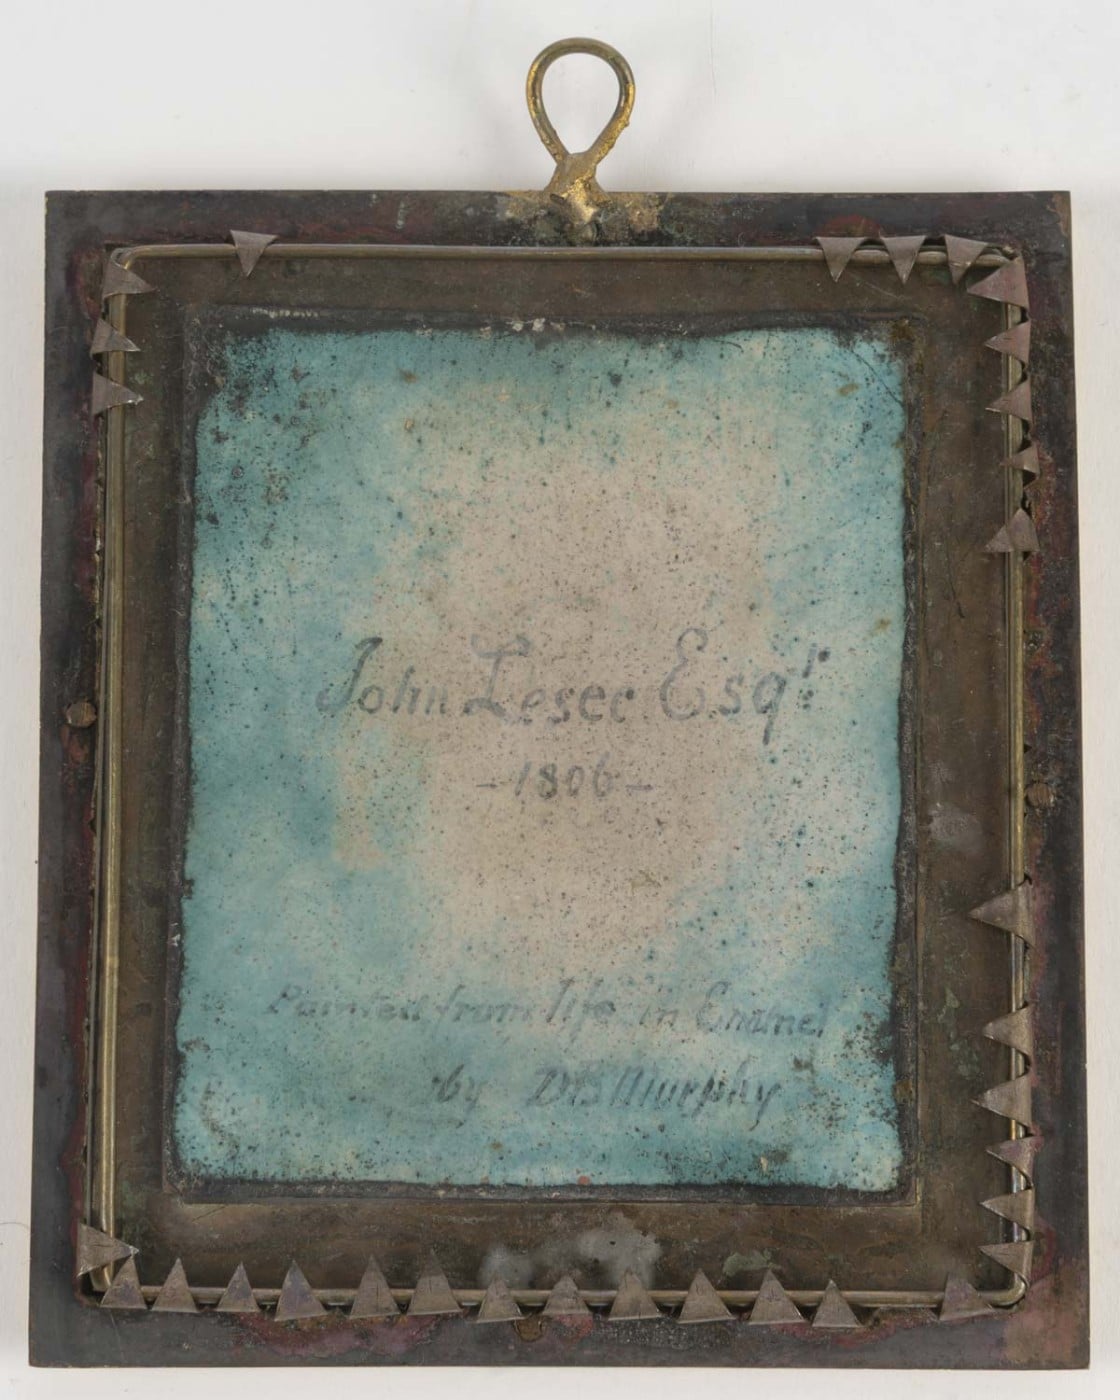 John Leser Esqr
-1806-
Painted from life in Enamel
by DB Murphy